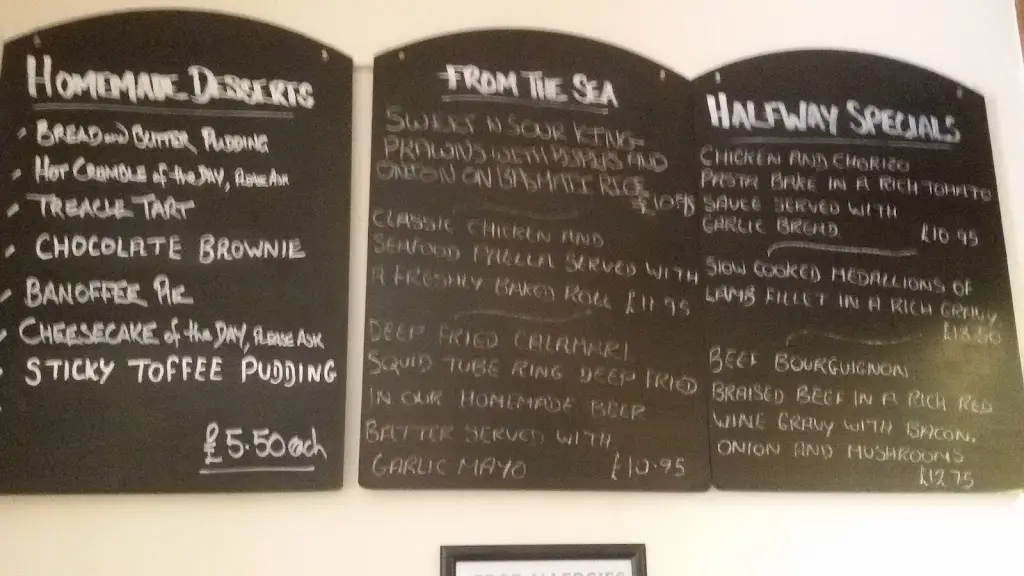 HOMEMADE DESSERTS
BREAD and BUTTER PUDDING
HOT CRUMBLE of the DAY, PLEASE ASK
TREACLE TART
CHOCOLATE BROWNIE
BANOFFEE PIE
CHEESECAKE of the DAY, PLEASE ASK
STICKY TOFFEE PUDDING
£5.50 each
FROM THE SEA
SWEET N SOUR KING
PRAWNS WITH PEPPERS AND
ONION ON BASMATI RICE
£10.95
CLASSIC CHICKEN AND
SEAFOOD PAELLA SERVED WITH
A FRESHLY BAKED ROLL £11.95
DEEP FRIED CALAMARI
SQUID TUBE RING DEEP FRIED
IN OUR HOMEMADE BEER
BATTER SERVED WITH
GARLIC MAYO £10.95
HALFWAY SPECIALS
CHICKEN AND CHORIZO
PASTA BAKE IN A RICH TOMATO
SAUCE SERVED WITH
GARLIC BREAD £10.95
SLOW COOKED MEDALLIONS OF
LAMB FILLET IN A RICH GRAVY
BEEF BOURGUIGNON
BRAISED BEEF IN A RICH RED
WINE GRAVY WITH BACON,
ONION AND MUSHROOMS
£12.75
ALLERGIES